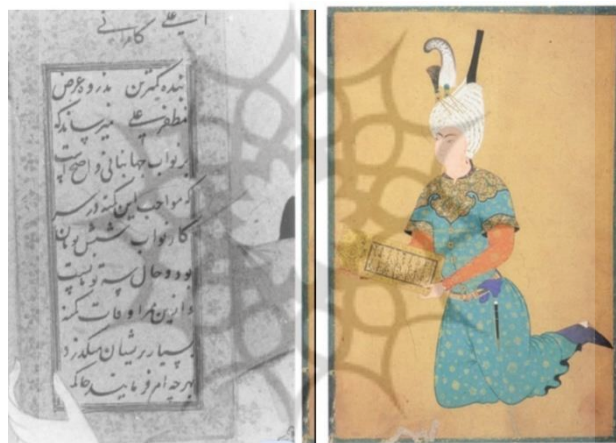 کامرانی
بنده کمترین بذروه عرض
مظفر علی میرساند که
بر نواب جهانبانی واضح است
که مواجب این کمینه در سر
کار نواب شش تومان
بود و حال سه تومانست
و ازین ممر اوقات کمینه
بسیار پریشان میگذرد
بهرچه امر فرمایند